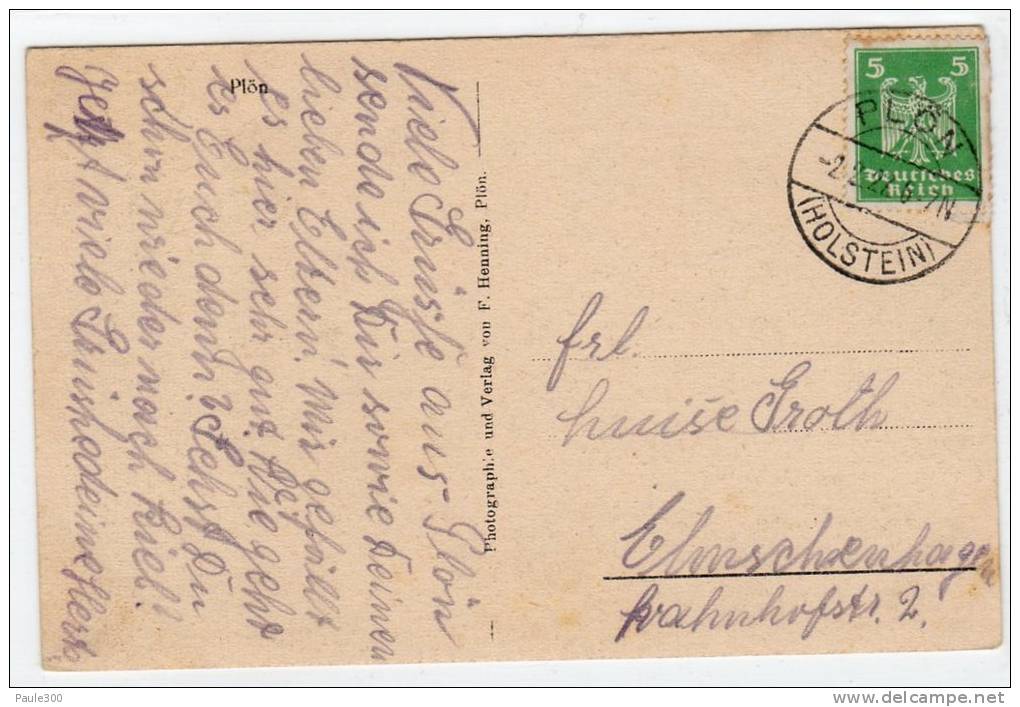 Plön
Viele Grüße aus Plön
sende ich Dir sowie Deinen
lieben Eltern. Mir gefällt
es hier sehr gut. Wie geht
es Euch denn? Gehst Du
schon wieder nach Kiel?
Jetzt viele Grüsse deine Herta
Photographie und Verlag von F. Henning, Plön.
5 5
Deutsches
Reich
PLÖN
(HOLSTEIN)
frl.
Luise Groth
Elmschenhagen
Bahnhofstr. 2.
Paule300
delcampe.net